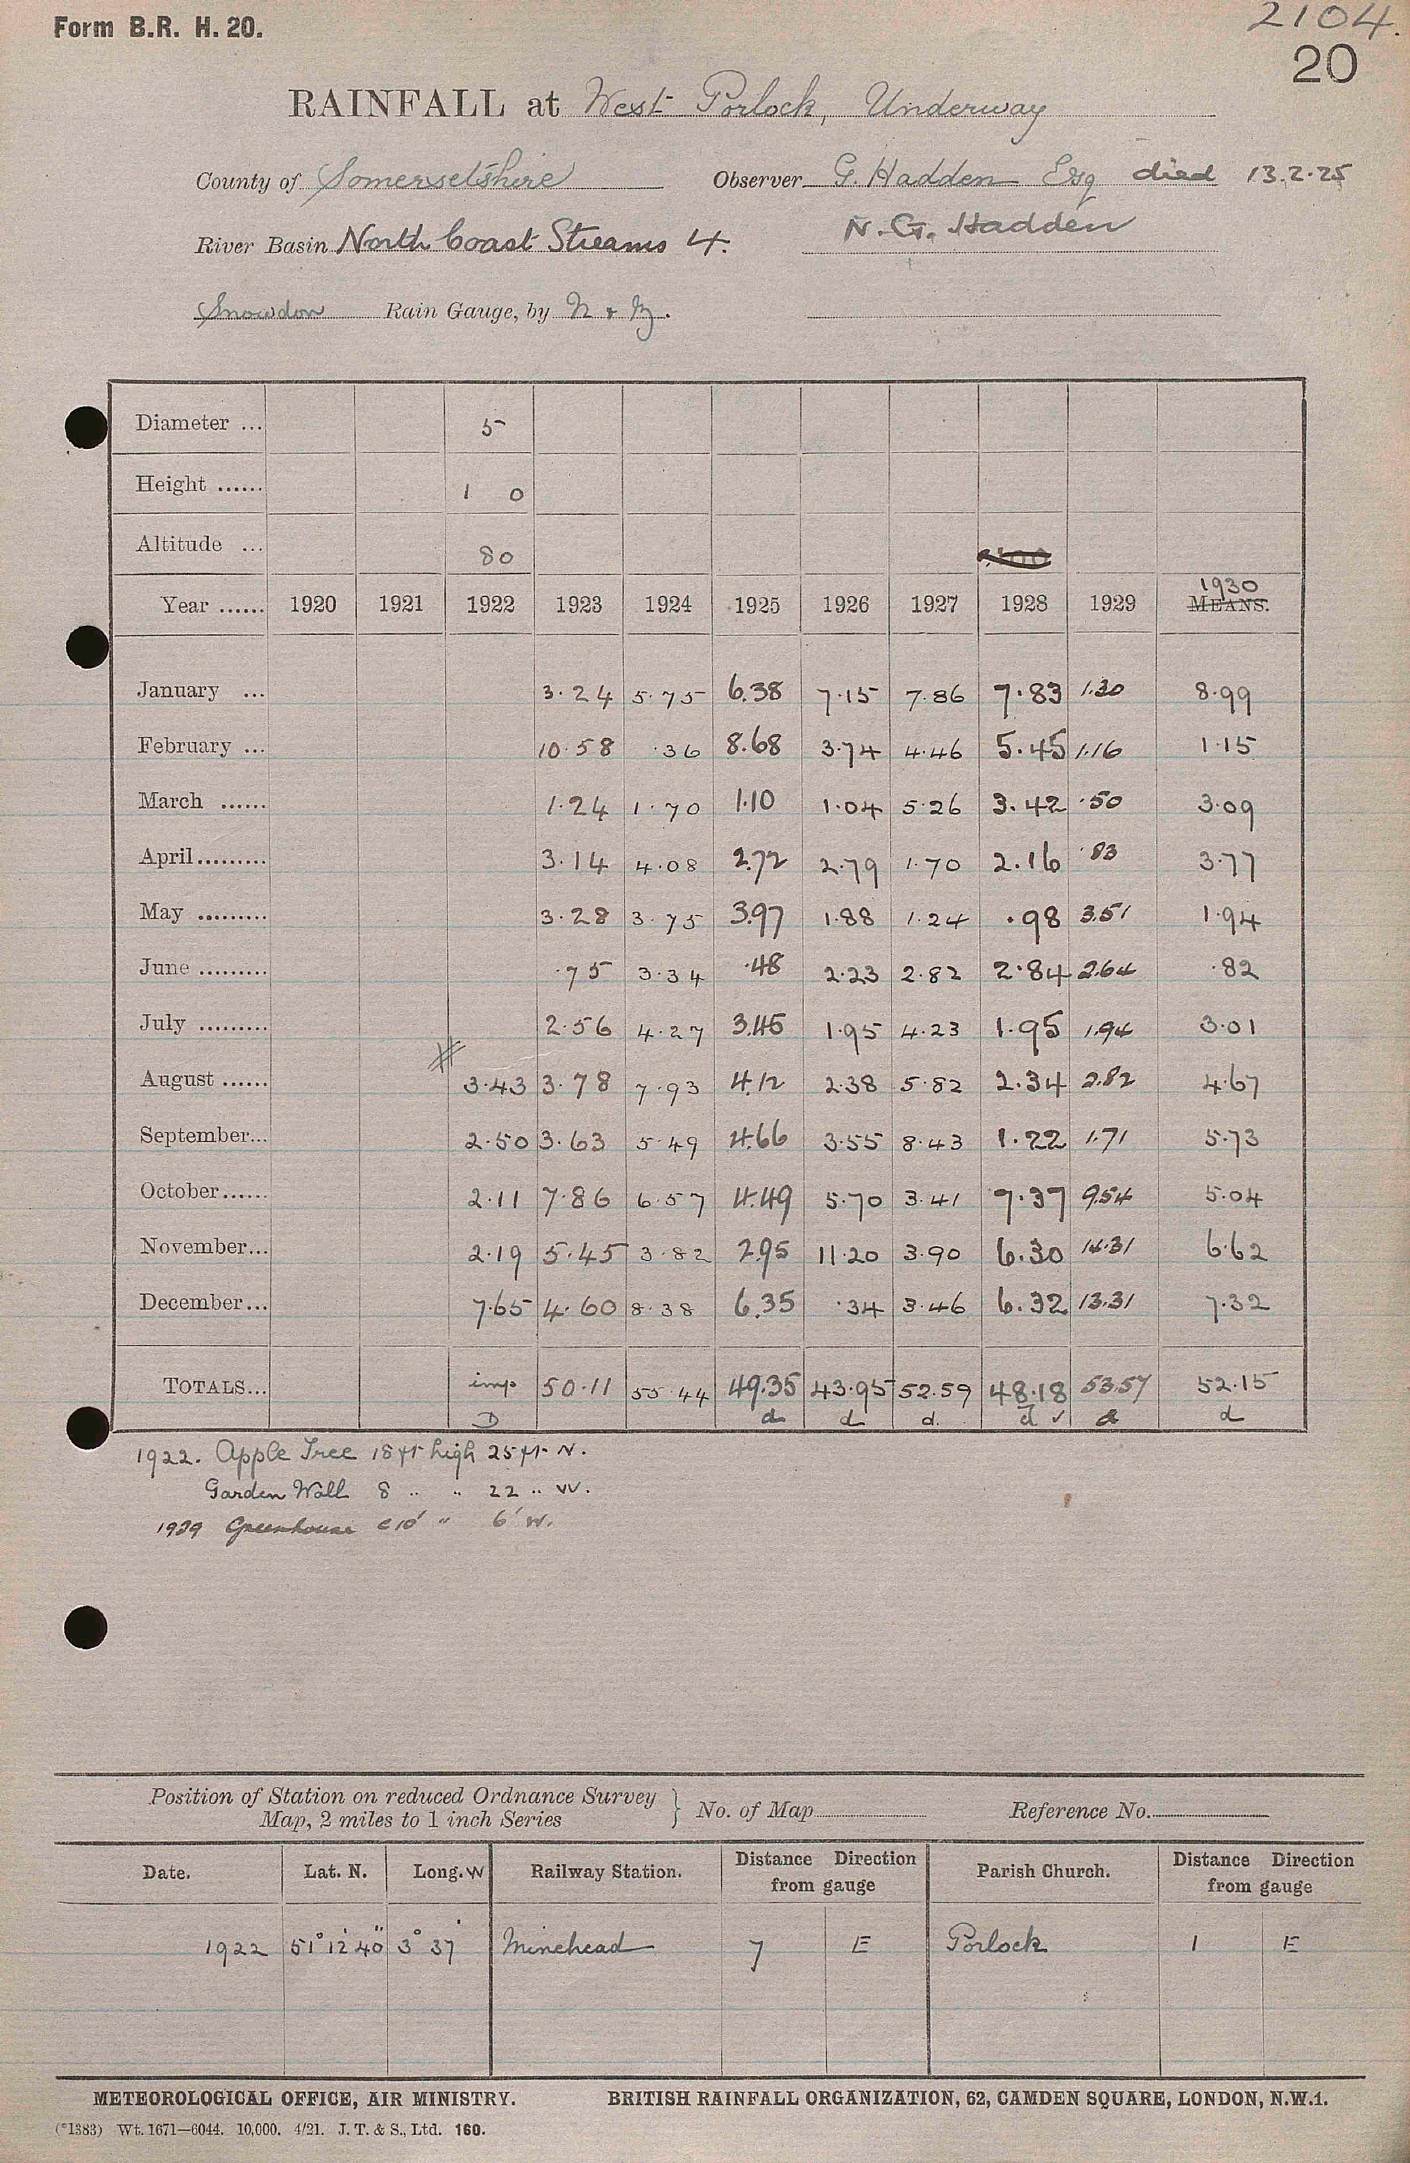 Form B.R. H. 20.
2104.
20
RAINFALL at West Porlock, Underway
County of Somersetshire Observer G. Hadden Esq died 13.2.25
River Basin North Coast Streams 4. N. G. Hadden
Snowdon Rain Gauge, by N & Z.
Diameter ... 5
Height ...... 1 0
Altitude ... 80
Year ...... 1920 1921 1922 1923 1924 1925 1926 1927 1928 1929 1930 MEANS.
January ... 3.24 5.75 6.38 7.15 7.86 7.83 1.30 8.99
February ... 10.58 .36 8.68 3.74 4.46 5.45 1.16 1.15
March ...... 1.24 1.70 1.10 1.04 5.26 3.42 .50 3.09
April......... 3.14 4.08 2.72 2.79 1.70 2.16 .83 3.77
May ......... 3.28 3.75 3.97 1.88 1.24 .98 3.51 1.94
June ......... .75 3.34 .48 2.23 2.82 2.84 2.64 .82
July ......... 2.56 4.27 3.45 1.95 4.23 1.95 1.94 3.01
August ...... 3.43 3.78 7.93 4.12 2.38 5.82 2.34 2.82 4.67
September... 2.50 3.63 5.49 4.66 3.55 8.43 1.22 1.71 5.73
October...... 2.11 7.86 6.57 4.49 5.70 3.41 7.37 9.54 5.04
November... 2.19 5.45 3.82 2.95 11.20 3.90 6.30 14.31 6.62
December... 7.65 4.60 8.38 6.35 .34 3.46 6.32 13.31 7.32
TOTALS... imp 50.11 55.44 49.35 43.95 52.59 48.18 53.57 52.15
D d d d. d ✓ d d
1922. Apple Tree 18 ft high 25 ft. N.
Garden Wall 8 " " 22 " W.
1929 Greenhouse c 10' " 6' W.
Position of Station on reduced Ordnance Survey
Map, 2 miles to 1 inch Series } No. of Map Reference No.
Date. Lat. N. Long. W Railway Station. Distance Direction from gauge Parish Church. Distance Direction from gauge
1922 51° 12' 40" 3° 37' Minehead 7 E Porlock 1 E
METEOROLOGICAL OFFICE, AIR MINISTRY. BRITISH RAINFALL ORGANIZATION, 62, CAMDEN SQUARE, LONDON, N.W.1.
(*1383) Wt. 1671—6044. 10,000. 4/21. J. T. & S., Ltd. 160.